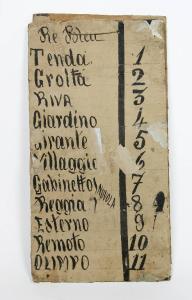 Re
Tenda 1
Grotta 2
RIVA 3
Giardino 4
5
Villaggio 6
Gabinetto 7
NUVOLA
Reggia 8
Esterno 9
Remoto 10
OLIMPO 11